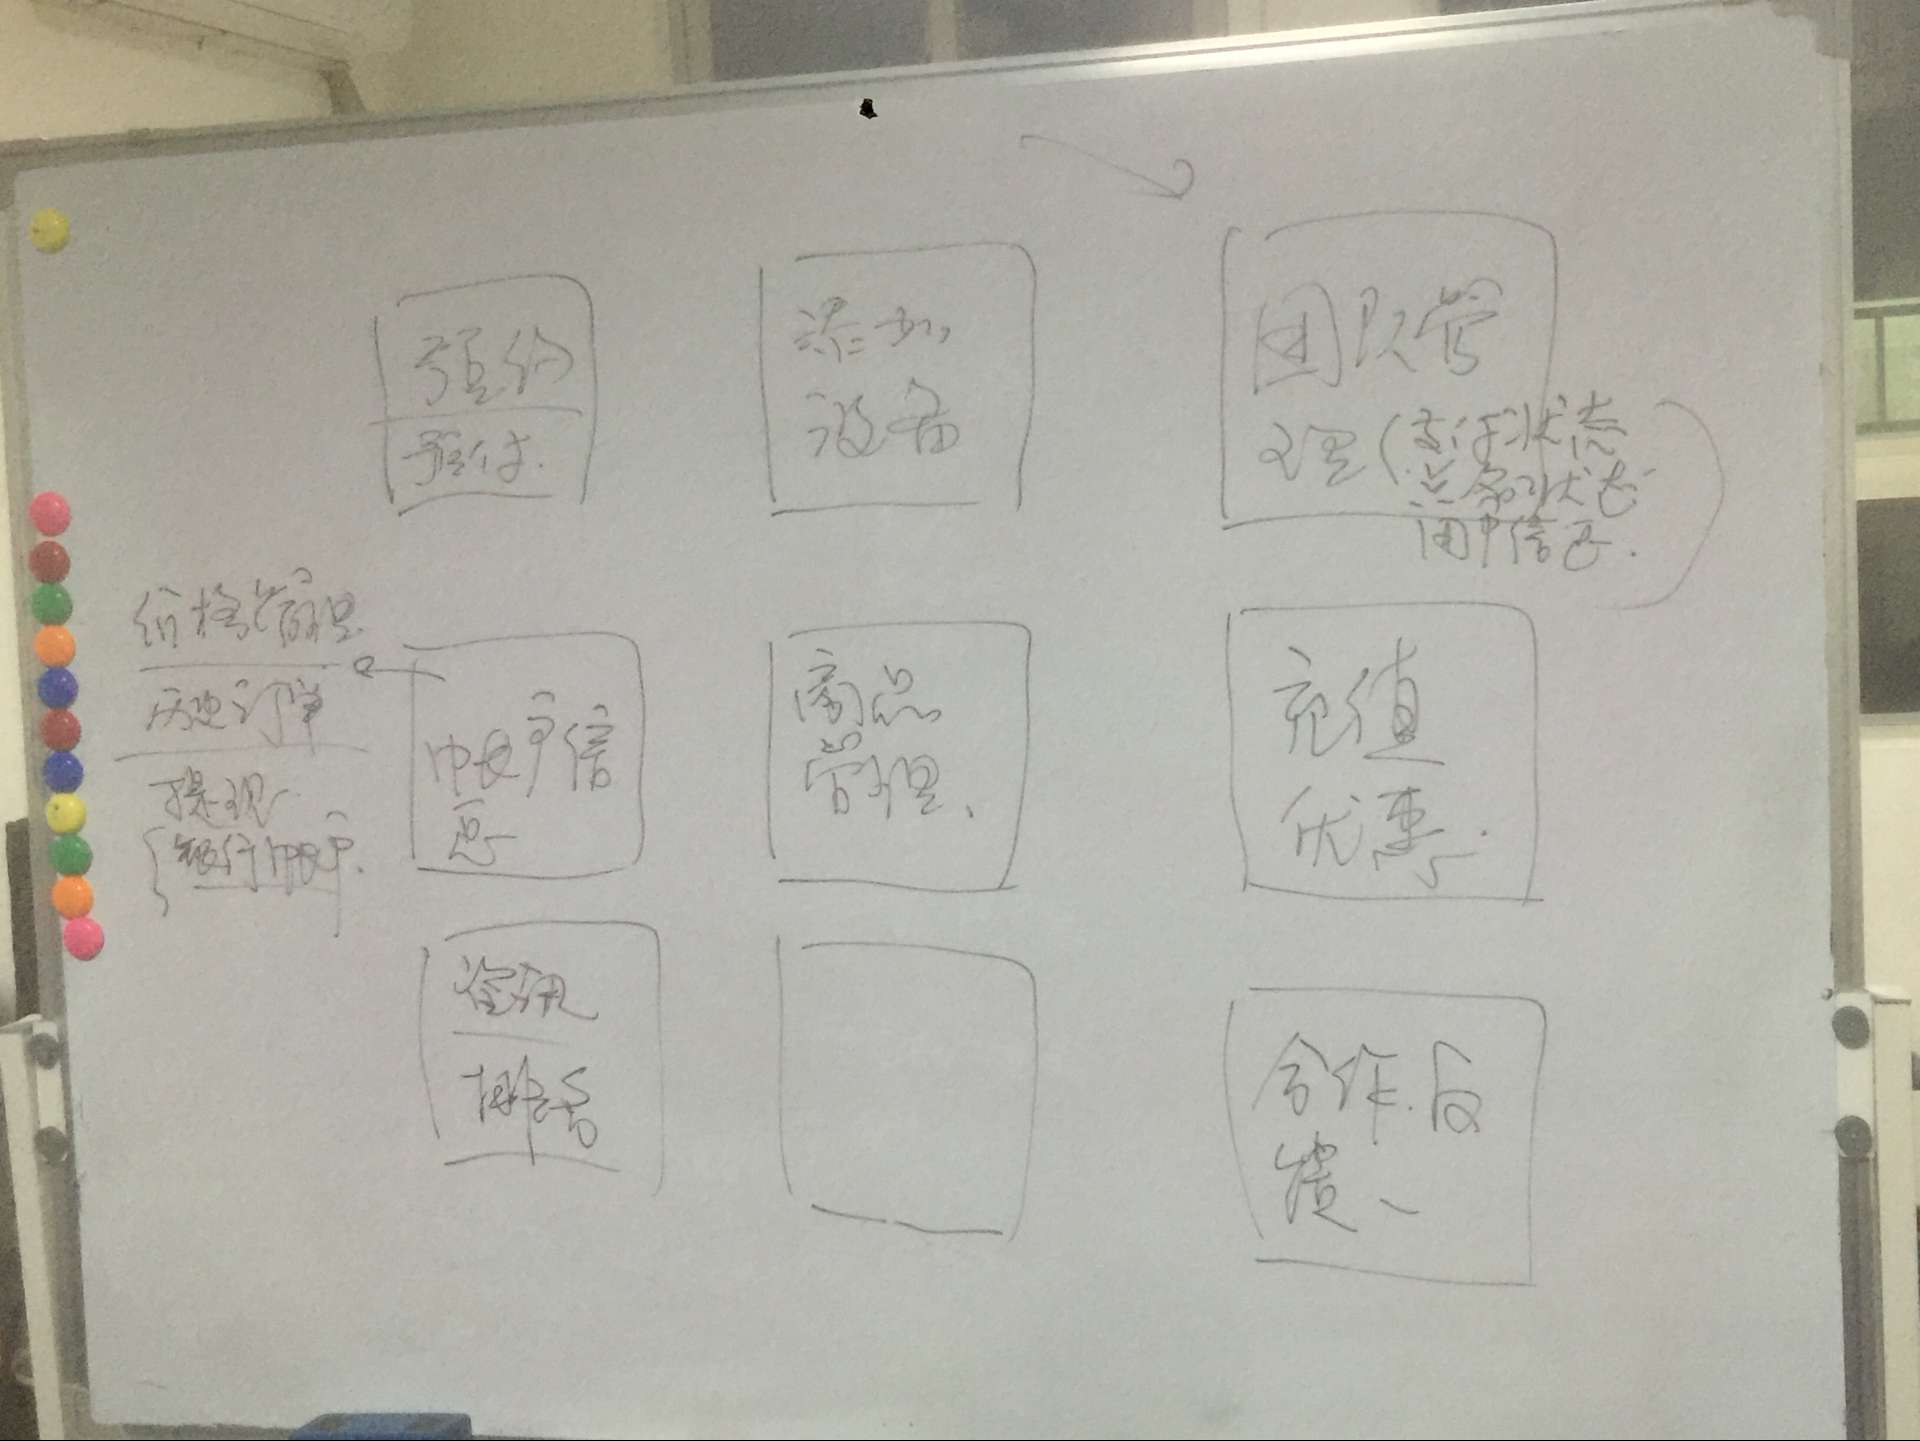 预约
预付.
添加
设备
团队管
理(支付状态
状态
用户信息.
价格管理
历史订单
提现
银行帐户.
帐户信
息
商品
管理、
充值
优惠.
资讯
排
合作.反
馈、